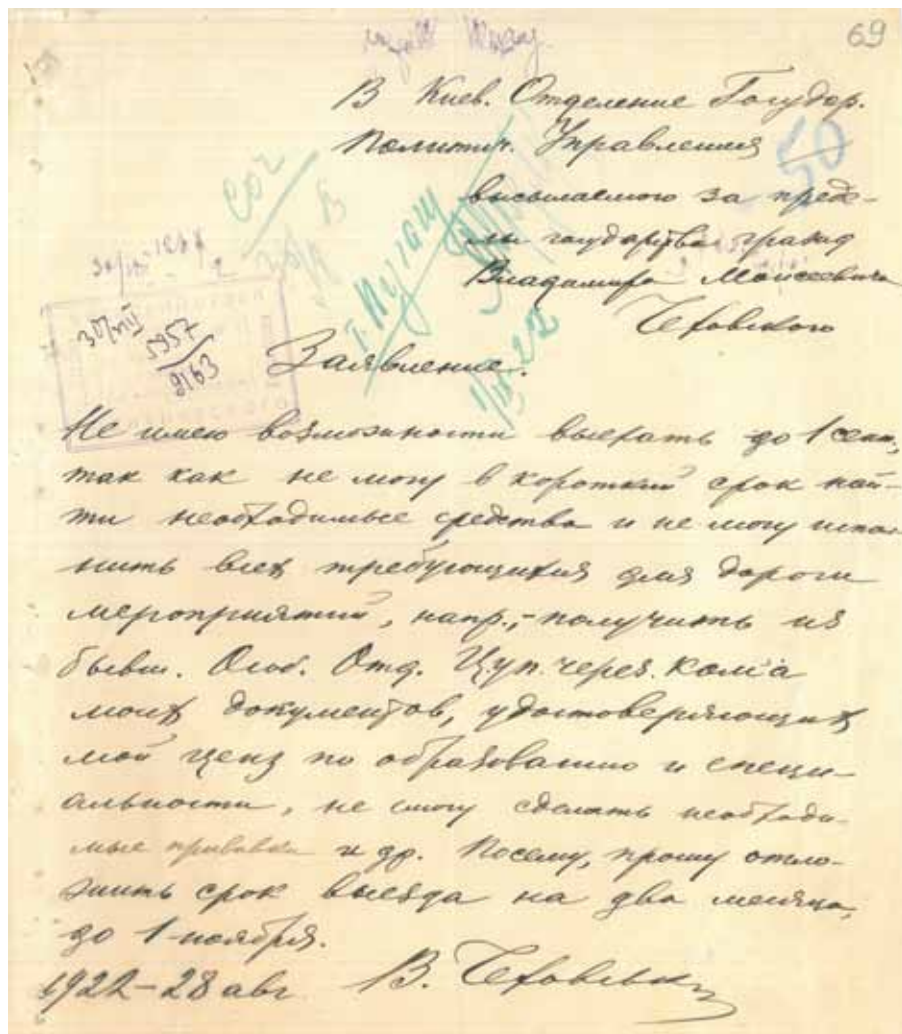 69
В Киев. Отделение Государ.
Политич. Управления
50
высылаемого за преде-
лы государства гражд
Владимира Моисеевича
Чеховского
30/VIII
5957
9163
Заявление.
Не имею возможности выехать до 1 сент.,
так как не могу в короткий срок най-
ти необходимые средства и не могу испол-
нить всех требующихся для дороги
мероприятий, напр.,- получить из
бывш. Особ. Отд. Цуп.
моих документов, удостоверяющих
мой ценз по образованию и специ-
альности, не смогу сделать необходи-
мые прививки и др. Посему, прошу отло-
жить срок выезда на два месяца,
до 1-ноября.
1922-28 авг
В. Чеховский